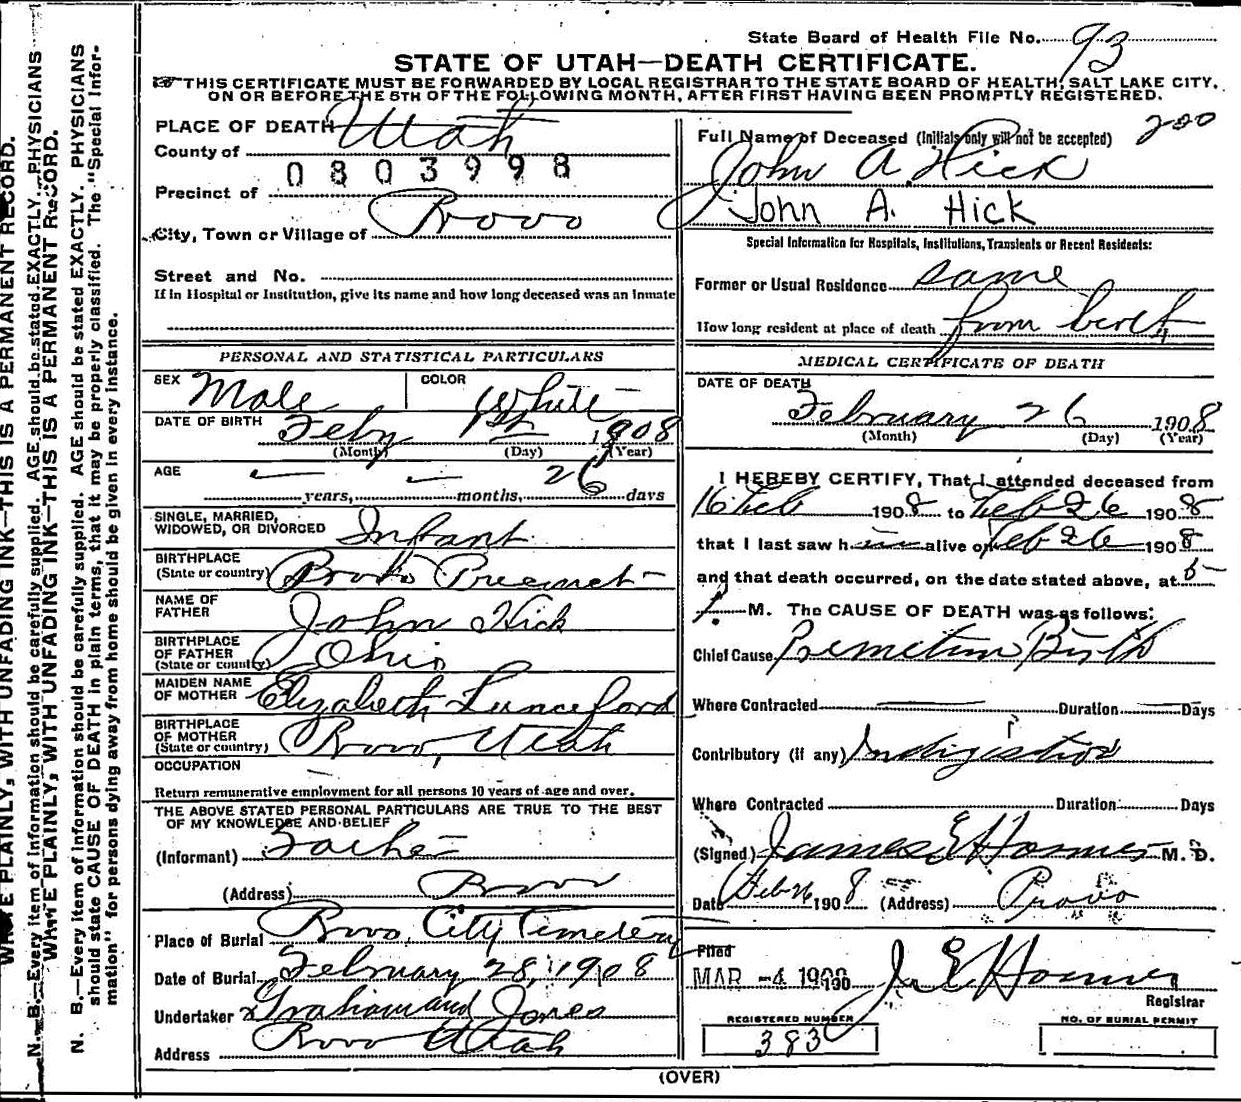 State Board of Health File No. 93
STATE OF UTAH—DEATH CERTIFICATE.
THIS CERTIFICATE MUST BE FORWARDED BY LOCAL REGISTRAR TO THE STATE BOARD OF HEALTH, SALT LAKE CITY,
ON OR BEFORE THE 5TH OF THE FOLLOWING MONTH, AFTER FIRST HAVING BEEN PROMPTLY REGISTERED.
PLACE OF DEATH
County of Utah
0803998
Precinct of
City, Town or Village of Provo
Street and No.
If in Hospital or Institution, give its name and how long deceased was an inmate
PERSONAL AND STATISTICAL PARTICULARS
SEX Male COLOR White
DATE OF BIRTH Feby 1st 1908
(Month) (Day) (Year)
AGE — years, — months, 26 days
SINGLE, MARRIED,
WIDOWED, OR DIVORCED Infant
BIRTHPLACE
(State or country) Provo Precinct
NAME OF
FATHER John Hick
BIRTHPLACE
OF FATHER
(State or country) Ohio
MAIDEN NAME
OF MOTHER Elizabeth Lunceford
BIRTHPLACE
OF MOTHER
(State or country) Provo, Utah
OCCUPATION
Return remunerative employment for all persons 10 years of age and over.
THE ABOVE STATED PERSONAL PARTICULARS ARE TRUE TO THE BEST
OF MY KNOWLEDGE AND BELIEF
(Informant) Father
(Address) Provo
Place of Burial Provo City Cemetery
Date of Burial February 28, 1908
Undertaker Graham and Jones
Address Provo Utah
200
Full Name of Deceased (Initials only will not be accepted)
John A. Hick
John A. Hick
Special Information for Hospitals, Institutions, Transients or Recent Residents:
Former or Usual Residence same
How long resident at place of death from birth
MEDICAL CERTIFICATE OF DEATH
DATE OF DEATH
February 26 1908
(Month) (Day) (Year)
I HEREBY CERTIFY, That I attended deceased from
16 Feb 1908 to Feb 26 1908
that I last saw him alive on Feb 26 1908
and that death occurred, on the date stated above, at 5
M. The CAUSE OF DEATH was as follows:
Chief Cause Premeture Birth
Where Contracted Duration Days
Contributory (if any) Indigistion
Where Contracted Duration Days
(Signed) James E Hosmer M. D.
Date Feb 26 1908 (Address) Provo
Filed
MAR -4 1908 J. E. Hosmer
Registrar
REGISTERED NUMBER
383
NO. OF BURIAL PERMIT
(OVER)
WRITE PLAINLY, WITH UNFADING INK—THIS IS A PERMANENT RECORD.
N. B.—Every item of information should be carefully supplied. AGE should be stated EXACTLY. PHYSICIANS
WRITE PLAINLY, WITH UNFADING INK—THIS IS A PERMANENT RECORD.
N. B.—Every item of information should be carefully supplied. AGE should be stated EXACTLY. PHYSICIANS
should state CAUSE OF DEATH in plain terms, that it may be properly classified. The "Special Infor-
mation" for persons dying away from home should be given in every instance.